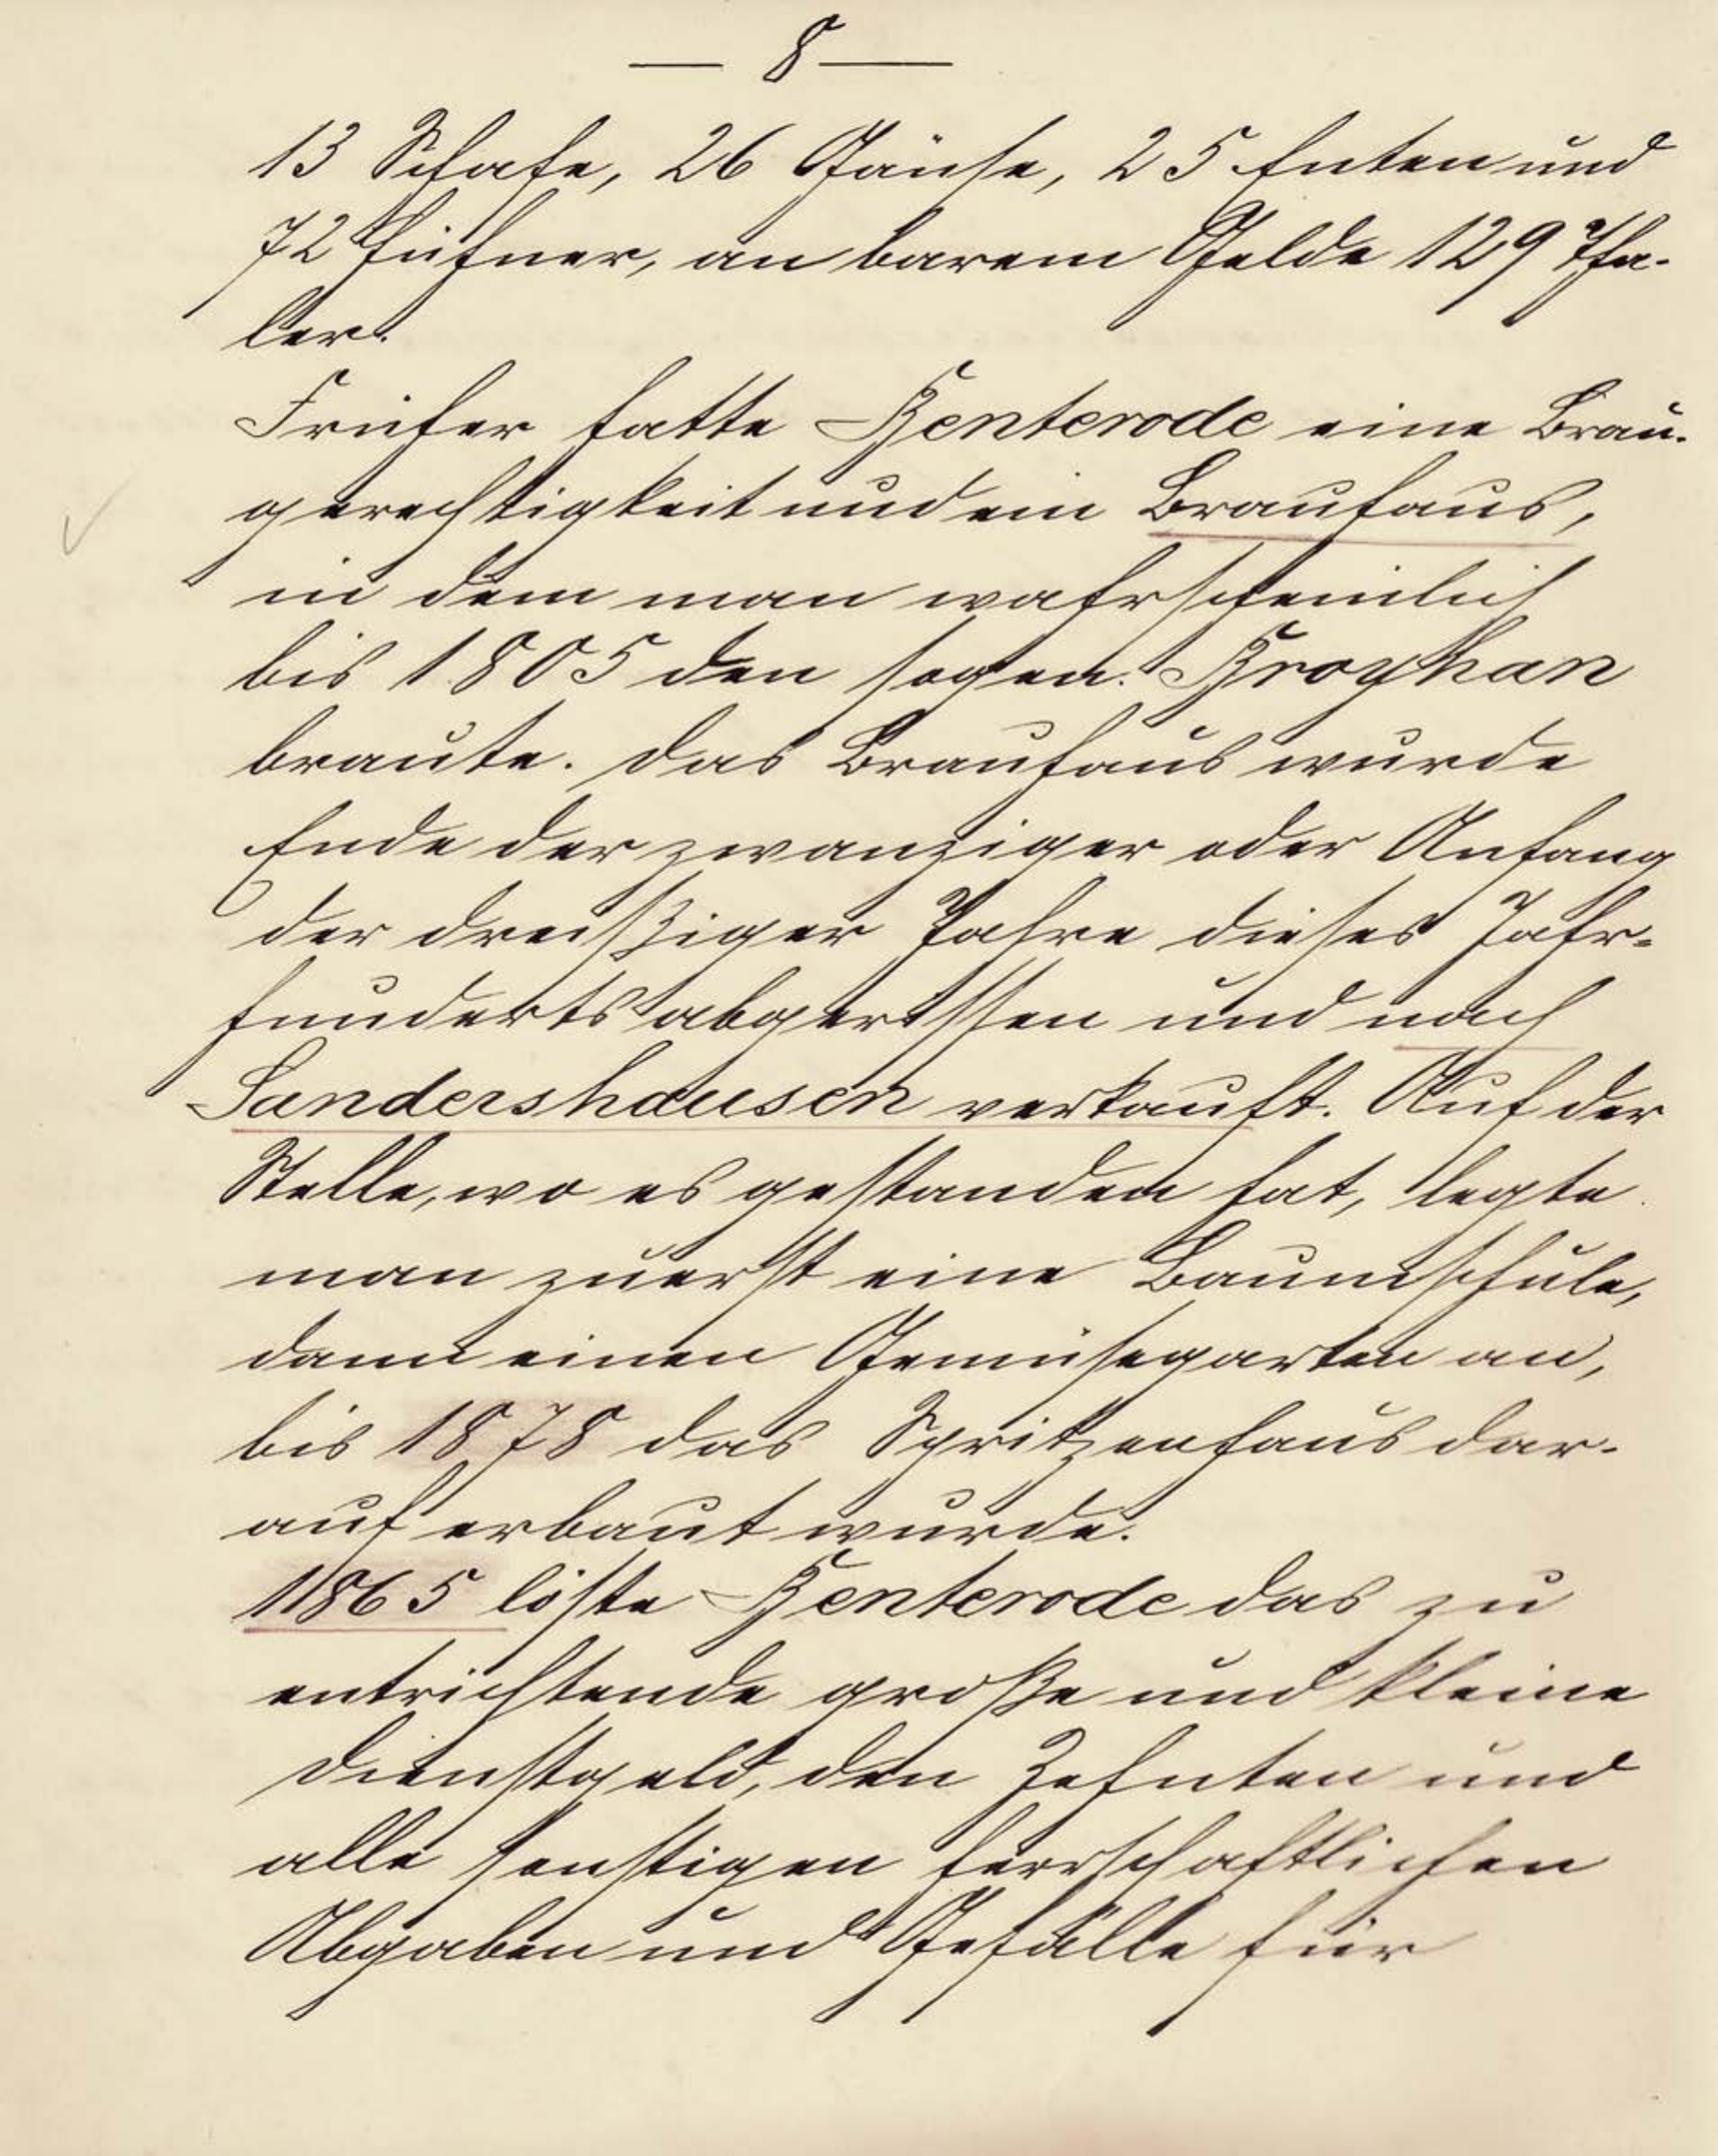 — 8 —
13 Schafe, 26 Gänse, 25 Enten und
72 Hühner, an barem Gelde 129 Tha-
ler.
Früher hatte Benterode eine Brau-
gerechtigkeit und ein Brauhaus,
in dem man wahrscheinlich
bis 1805 den sogen. Broyhan
braute. Das Brauhaus wurde
Ende der zwanziger oder Anfang
der dreißiger Jahre dieses Jahr-
hunderts abgerissen und nach
Sandershausen verkauft. Auf der
Stelle, wo es gestanden hat, legte
man zuerst eine Baumschule,
dann einen Gemüsegarten an,
bis 1878 das Spritzenhaus dar-
auf erbaut wurde.
1865 löste Benterode das zu
entrichtende große und kleine
Dienstgeld, den Zehnten und
alle sonstigen herrschaftlichen
Abgaben und Gefälle für